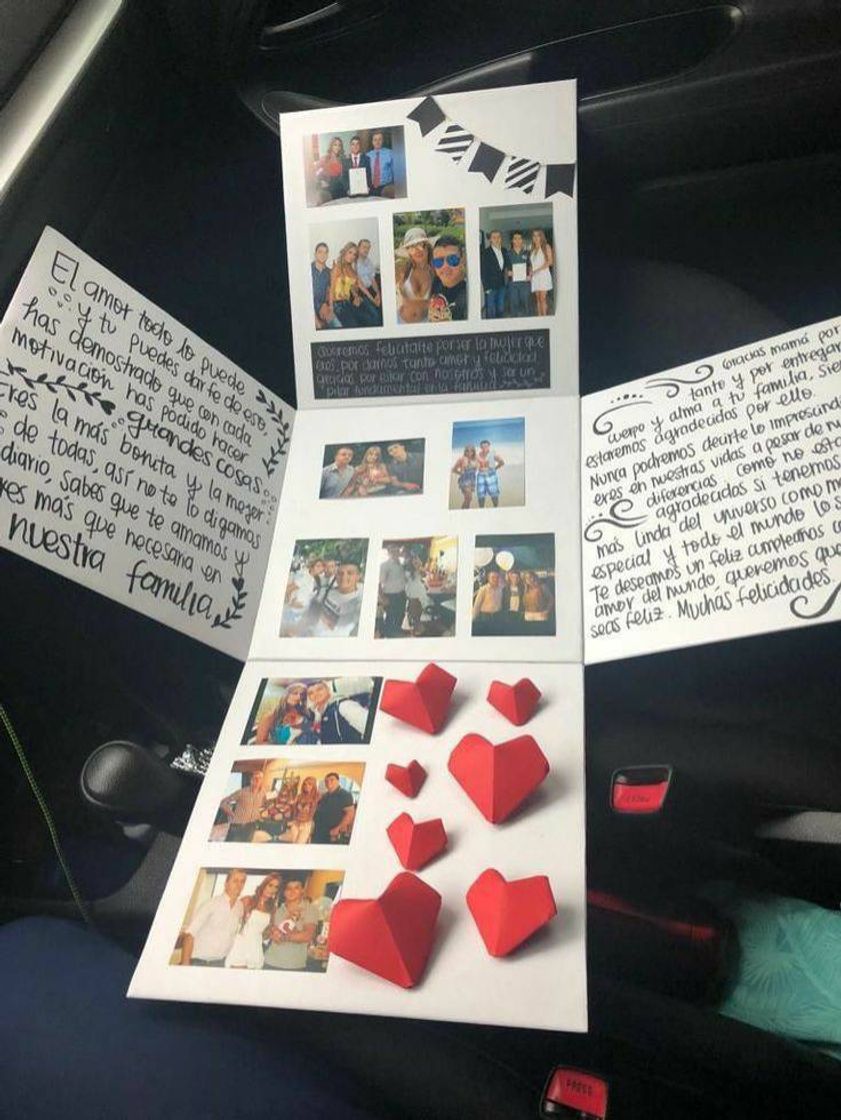 El amor todo lo puede
y tu puedes dar fe de eso,
has demostrado que con cada
motivación has podido hacer
grandes cosas.
Eres la más bonita y la mejor
de todas, así no te lo digamos
diario, sabes que te amamos y
eres más que necesaria en
nuestra familia
Queremos felicitarte por ser la mujer que
eres, por darnos tanto amor y felicidad
Gracias por estar con nosotros y ser un
pilar fundamental en la familia
Gracias mamá por
tanto y por entregar
cuerpo y alma a tu familia, sie
estaremos agradecidos por ello.
Nunca podremos decirte lo imprescindi
eres en nuestras vidas a pesar de nu
diferencias, como no esta
agradecidos si tenemos
más linda del universo como m
especial y todo el mundo lo s
Te deseamos un feliz cumpleaños
amor del mundo, queremos que
seas feliz. Muchas felicidades.
PRESS